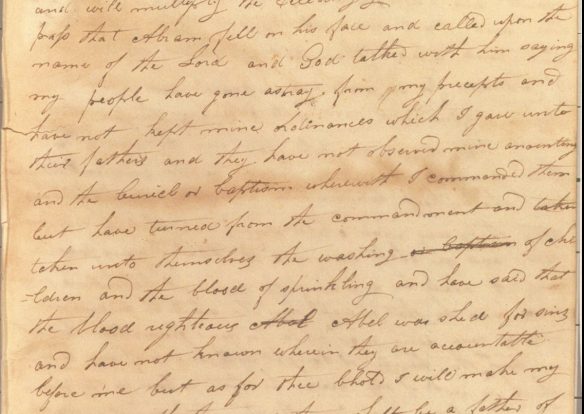 and will multiply
pass that Abram fell on his face and called upon the
name of the Lord and God talked with him saying
my people have gone astray from my precepts and
have not kept mine ordinances which I gave unto
their fathers and they have not observed mine anointing
and the buriel or baptism wherewith I commanded them
but have turned from the commandment and taken
taken unto themselves the washing or baptism of chi
-ldren and the blood of sprinkling and have said that
the blood righteous Abel Abel was shed for sins
and have not known wherein they are accountable
before me but as for thee bhold I will make my
a father of